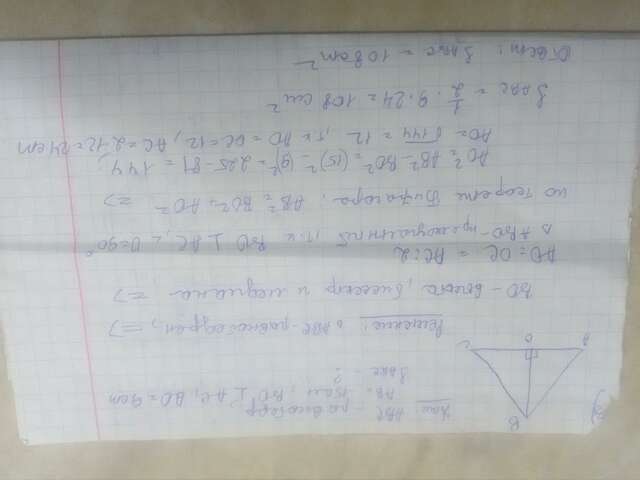 3)
Дано: ABC - равнобедр
AB = 15см, BO ⊥ AC, BO = 9см
S ABC - ?
B
A O C
Решение: △ABC - равнобедрен, =>
BO - высота, биссектр и медиана =>
AO = OC = AC:2
△ ABO - прямоугольный т.к BO ⊥ AC, ∠O=90°
по теореме Пифагора: AB² = BO² + AO² =>
AO² = AB² - BO² = (15)² - (9)² = 225 - 81 = 144
AO = √144 = 12, т.к AO = OC = 12, AC = 2·12 = 24 cm
S ABC = 1/2 · 9 · 24 = 108 cm²
Ответ: S ABC = 108 cm²